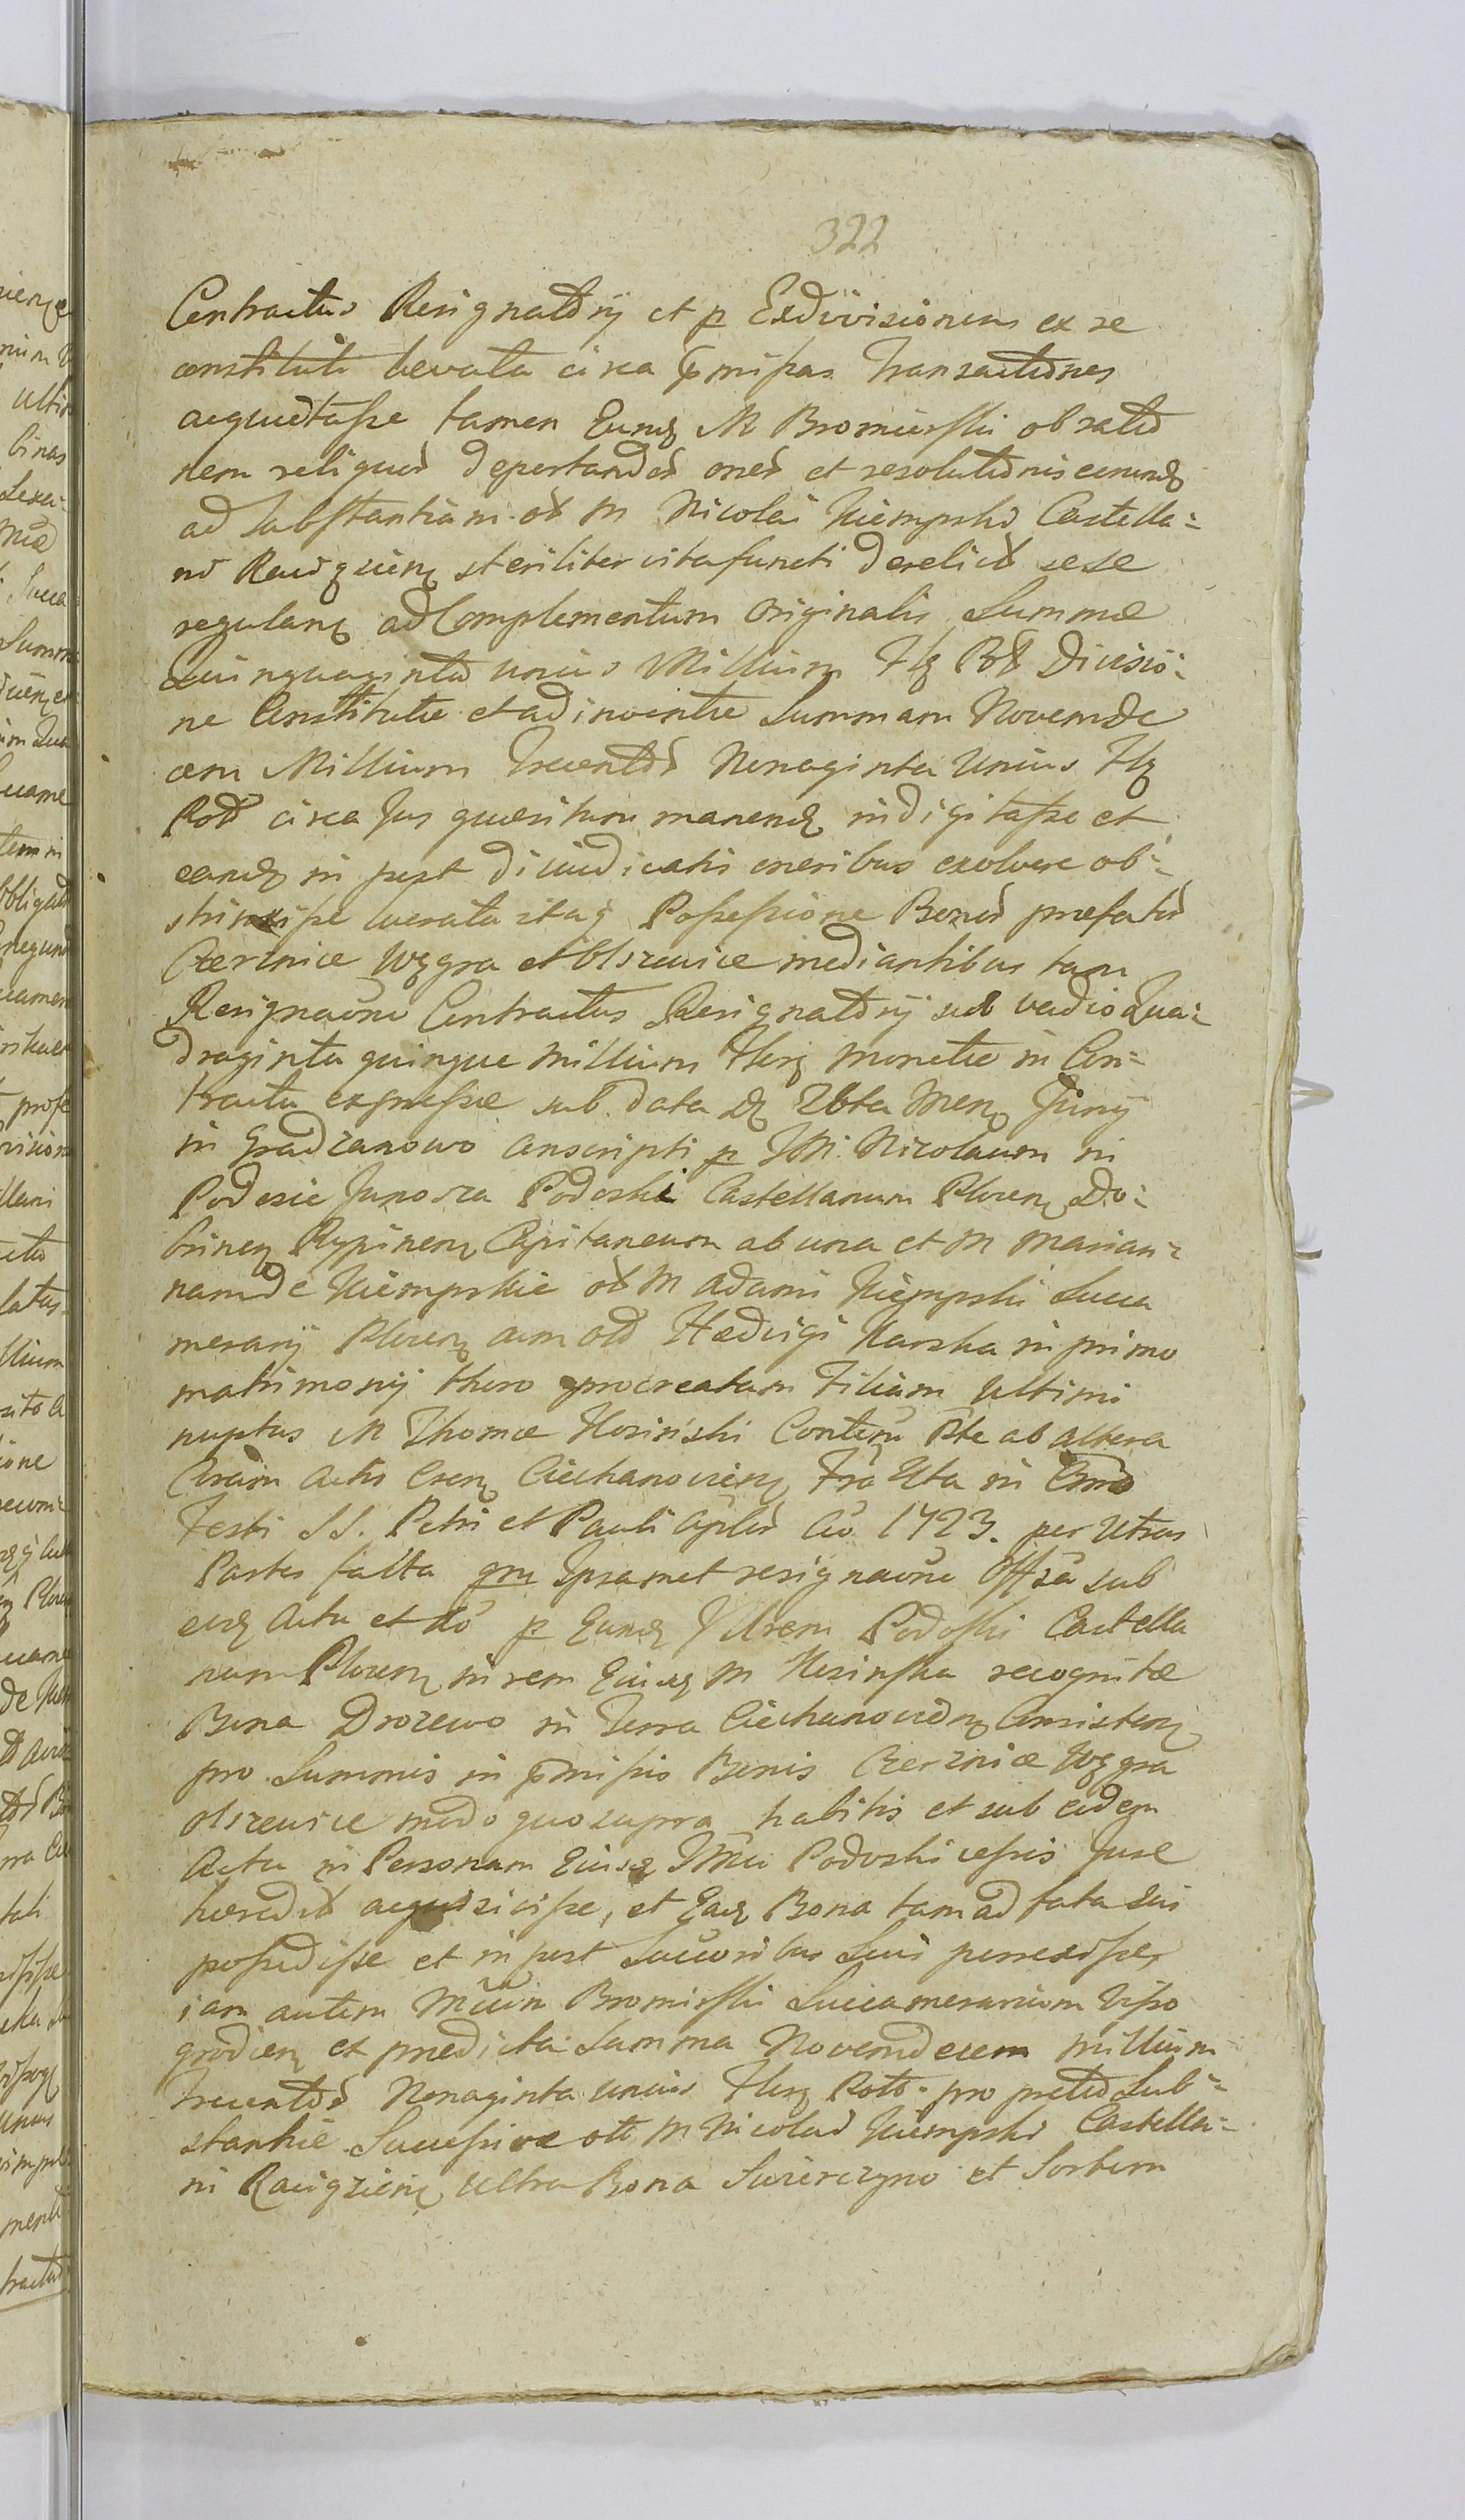 322
Contractus Resignatorij et p Exdivisionem ex se
constituti levata circa p̄mißas Transactiones
acquietaße tamen Eunđ M Bromirski ob ratio
nem reliquor deportandor oner et resolutionis eorunđ
ad Substantiam ol M Nicolai Niempski Castella-
ni Raciązień steriliter vita functi derelict sese
regulanę ad Complementum Originalis Summæ
Quinquaginta unius Millium Flę Pol Divisio-
ne Constitutæ et adinventæ Summam Novemde
cem Millium Trecentor Nonaginta Unius Flę
Pol circa Jus quæsitum manenđ indigitaße et
eanđ in post dijudicatis oneribus exolvere ob-
strinxiße luerata itaq Poßeßione Bonor præfator
Czernice Węgra et Olszewice mediantibus tam
Resignaõne Contractus Resignatorij sub vadio Qua-
draginta quinque Millium Flor Monetæ in Con-
tractu expreßæ sub data đ 26ta Mens Junij
in Gradzanowo conscripti p JM. Nicolaum in
Podosie Junosza Podoski Castellanum Plocen Do-
brinen Rypinen Capitaneum ab una et M Marian-
nam de Niempskie ol M Adami Niempski Succa
merarij Plocen cum olo Hedvigi Karska in primo
matrimonij thoro procreatam Filiam Ultimi
nuptus M Thomæ Kosiński Contem Pte ab altera
Coram Actis Cren Ciechanovien Fria 2ta in Cro
Festi SS. Petri et Pauli Aplor Ao 1723. per Utras
Partes facta qm Ipsamet resignaõne Offsa sub
eođ Actu et do p Eunđ Ilrem Podoski Castella
num Plocen in rem Eiusđ M Kosinska recognitæ
Bona Drozewo in Terra Ciechanovien Consisten
pro Summis in p̄mißis Bonis Czerznice Węgra
Olszewice modo quo supra habitis et sub eodem
Actu in Personam Eiusđ JMci Podoski ceßis Jure
hæredit acquisiciße, et Eađ Bona tam ad fata sui
poßediße et in post Succoribus Suis perrexiße,
iam autem Mcum Bromirski Succamerarium Viszo
grodien et prædicta Summa Novemdecem Millium
Trecentor Nonaginta unius Flor Pol. pro pretio Sub-
stantiæ Succeßivæ oli M Nicolai Niempski Castella-
ni Raciązien ultra Bona Swierczyno et Sortem